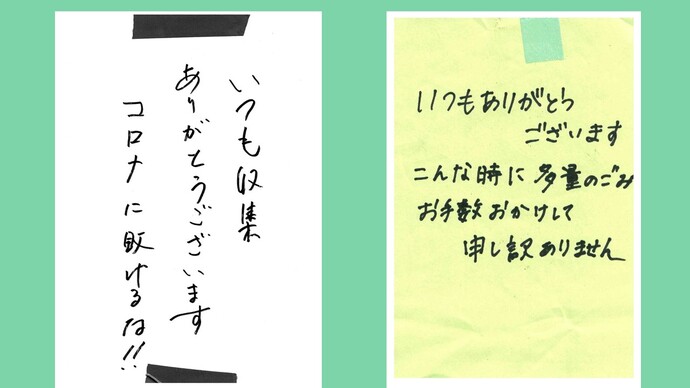 いつも収集
ありがとうございます
コロナに敗けるな!!
いつもありがとう
ございます
こんな時に多量のごみ
お手数おかけして
申し訳ありません